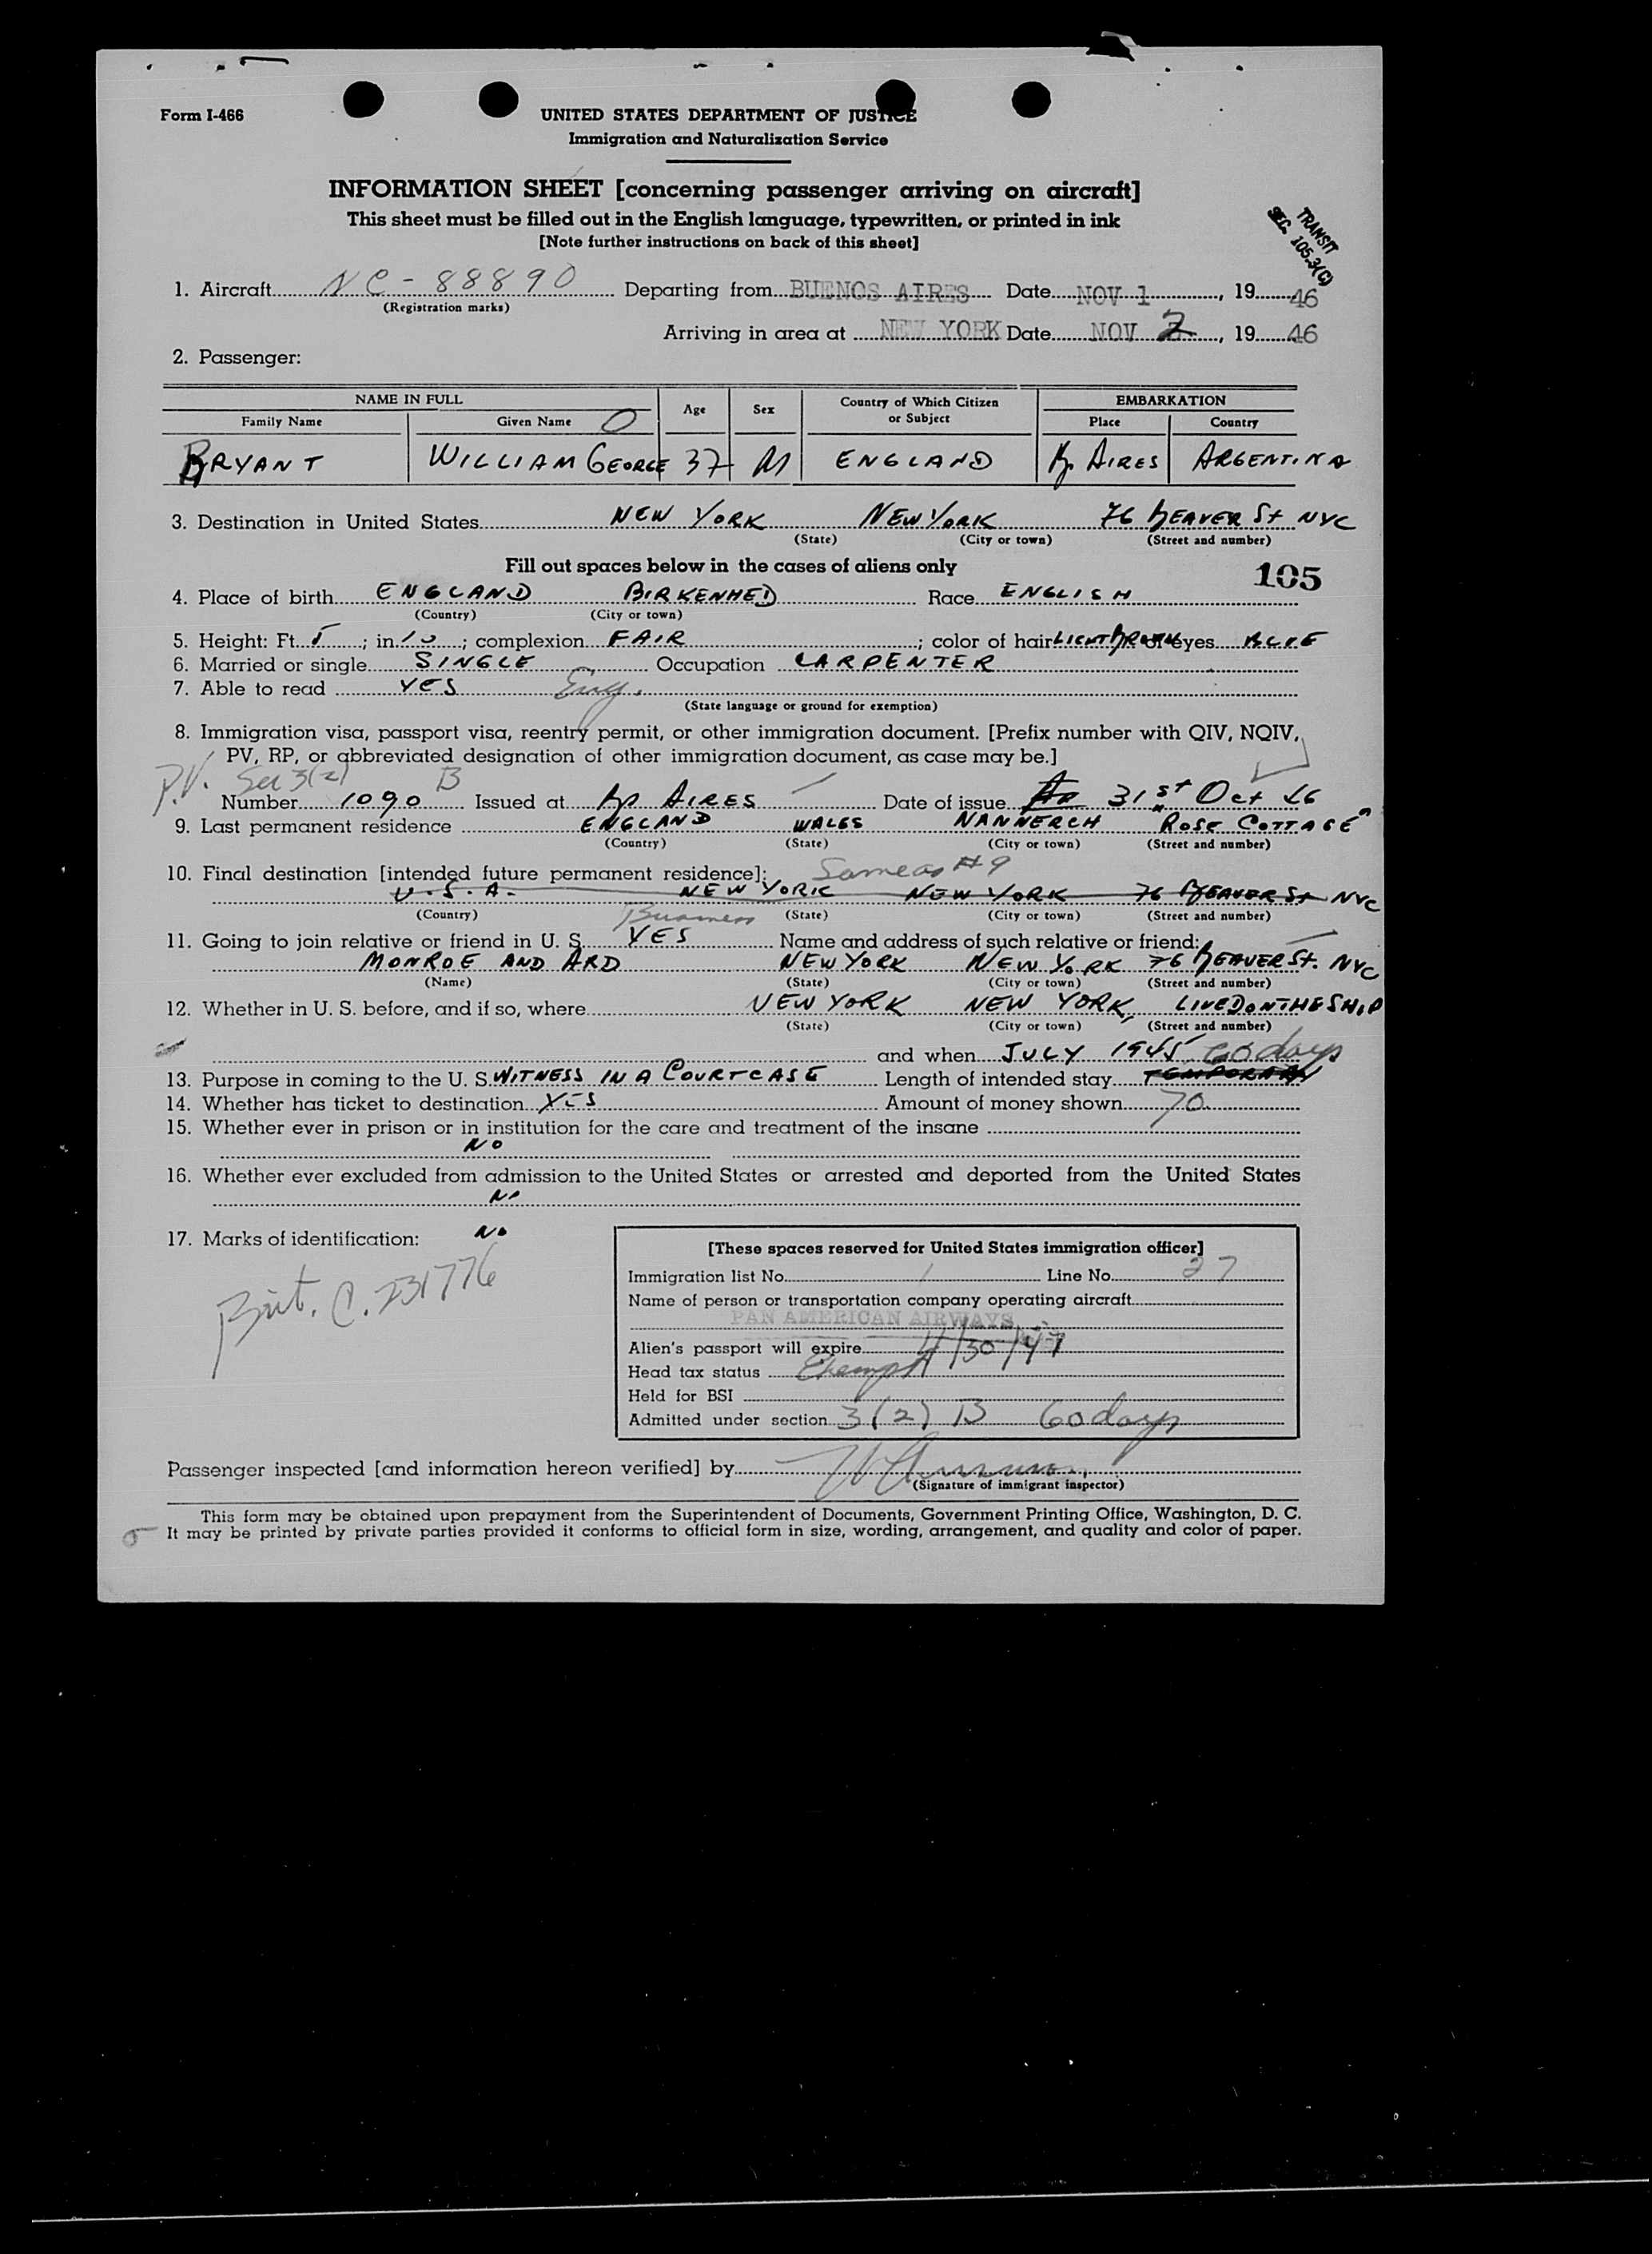 Form I-466
UNITED STATES DEPARTMENT OF JUSTICE
Immigration and Naturalization Service
INFORMATION SHEET [concerning passenger arriving on aircraft]
This sheet must be filled out in the English language, typewritten, or printed in ink
[Note further instructions on back of this sheet]
TRANSIT
SEC. 105.3(C)
1. Aircraft NC-88890 Departing from BUENOS AIRES Date NOV 1, 1946
(Registration marks)
Arriving in area at NEW YORK Date NOV 2, 1946
2. Passenger:
NAME IN FULL Age Sex Country of Which Citizen or Subject EMBARKATION
Family Name Given Name Place Country
BRYANT WILLIAM GEORGE 37 M ENGLAND B. AIRES ARGENTINA
3. Destination in United States NEW YORK NEW YORK 76 BEAVER St NYC
(State) (City or town) (Street and number)
Fill out spaces below in the cases of aliens only
105
4. Place of birth ENGLAND BIRKENHED Race ENGLISH
(Country) (City or town)
5. Height: Ft. 5; in 10; complexion FAIR; color of hair LIGHT BROWN of eyes BLUE
6. Married or single SINGLE Occupation CARPENTER
7. Able to read YES Eng.
(State language or ground for exemption)
8. Immigration visa, passport visa, reentry permit, or other immigration document. [Prefix number with QIV, NQIV,
PV, RP, or abbreviated designation of other immigration document, as case may be.]
P.V. Sec 3(2) B
Number 1090 Issued at B. AIRES Date of issue 31st Oct 46
9. Last permanent residence ENGLAND WALES NANNERCH "ROSE COTTAGE"
(Country) (State) (City or town) (Street and number)
10. Final destination [intended future permanent residece]: Same as #9
U.S.A. NEW YORK NEW YORK 76 BEAVER St NYC
(Country) (State) (City or town) (Street and number)
Business
11. Going to join relative or friend in U. S. YES Name and address of such relative or friend:
MONROE AND ARD NEW YORK NEW YORK 76 BEAVER St. NYC
(Name) (State) (City or town) (Street and number)
12. Whether in U. S. before, and if so, where NEW YORK NEW YORK, LIVED ON THE SHIP
(State) (City or town) (Street and number)
and when JULY 1945 60 days
13. Purpose in coming to the U. S. WITNESS IN A COURT CASE Length of intended stay TEMPORARY
14. Whether has ticket to destination YES Amount of money shown 70
15. Whether ever in prison or in institution for the care and treatment of the insane
NO
16. Whether ever excluded from admission to the United States or arrested and deported from the United States
NO
17. Marks of identification: NO
Brit. C. 231776
[These spaces reserved for United States immigration officer]
Immigration list No. 1 Line No. 27
Name of person or transportation company operating aircraft
PAN AMERICAN AIRWAYS
Alien's passport will expire 4/30/47
Head tax status Exempt
Held for BSI
Admitted under section 3(2) B 60 days
Passenger inspected [and information hereon verified] by
(Signature of immigrant inspector)
This form may be obtained upon prepayment from the Superintendent of Documents, Government Printing Office, Washington, D. C.
It may be printed by private parties provided it conforms to official form in size, wording, arrangement, and quality and color of paper.